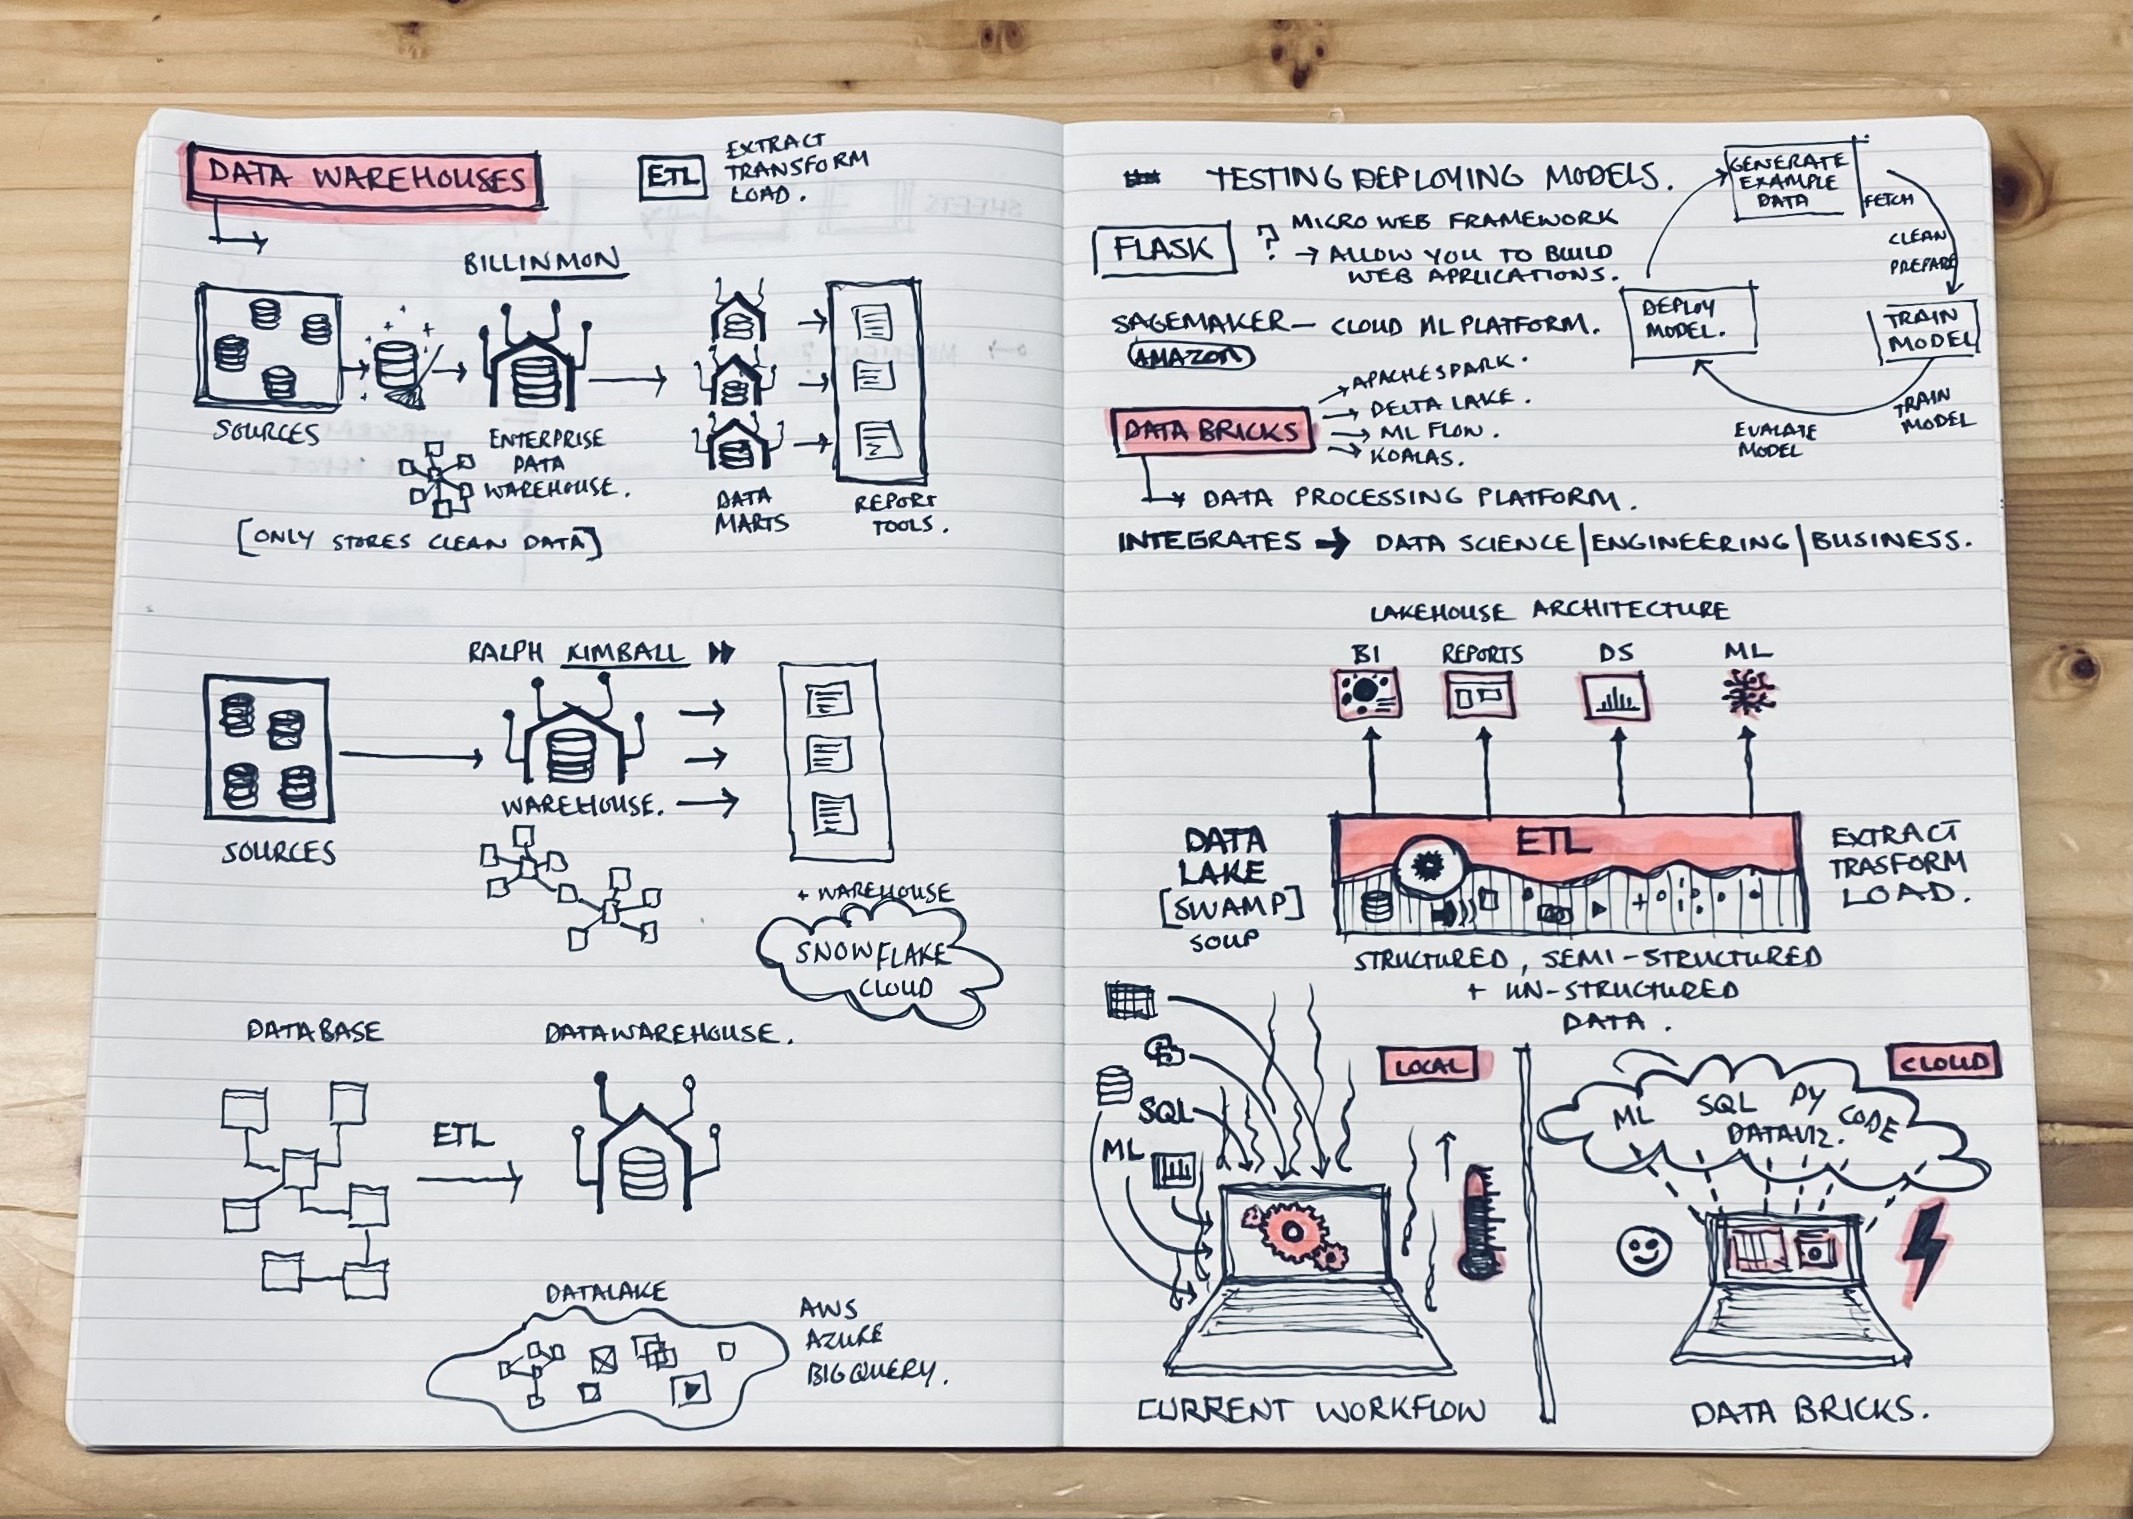 DATA WAREHOUSES
ETL
EXTRACT
TRANSFORM
LOAD.
BILL INMON
SOURCES
ENTERPRISE
DATA
WAREHOUSE.
DATA
MARTS
REPORT
TOOLS.
[ONLY STORES CLEAN DATA]
RALPH KIMBALL
SOURCES
WAREHOUSE.
+ WAREHOUSE
SNOWFLAKE
CLOUD
DATABASE
DATAWAREHOUSE.
ETL
DATALAKE
AWS
AZURE
BIGQUERY.
TESTING DEPLOYING MODELS.
FLASK
? MICRO WEB FRAMEWORK
→ ALLOW YOU TO BUILD
WEB APPLICATIONS.
SAGEMAKER — CLOUD ML PLATFORM.
AMAZON
GENERATE
EXAMPLE
DATA
FETCH
CLEAN
PREPARE
TRAIN
MODEL
TRAIN
MODEL
EVALUATE
MODEL
DEPLOY
MODEL.
DATA BRICKS
→ APACHE SPARK.
→ DELTA LAKE.
→ ML FLOW.
→ KOALAS.
→ DATA PROCESSING PLATFORM.
INTEGRATES → DATA SCIENCE | ENGINEERING | BUSINESS.
LAKEHOUSE ARCHITECTURE
BI REPORTS DS ML
DATA
LAKE
[SWAMP]
SOUP
ETL
EXTRACT
TRASFORM
LOAD.
STRUCTURED, SEMI-STRUCTURED
+ UN-STRUCTURED
DATA.
SQL
ML
LOCAL
CURRENT WORKFLOW
CLOUD
ML SQL PY CODE
DATAVIZ.
DATA BRICKS.